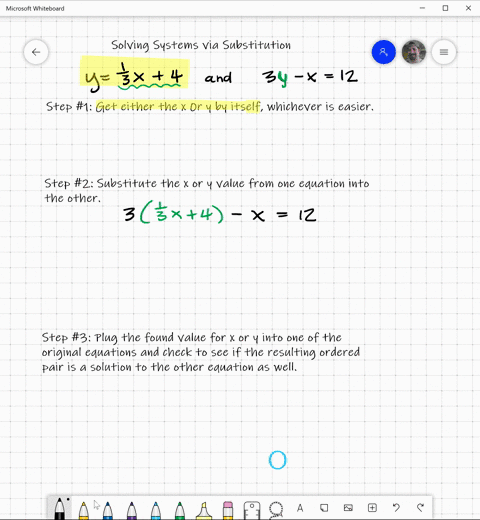 Microsoft Whiteboard
Solving Systems via Substitution
y = 1/3 x + 4 and 3y - x = 12
Step #1: Get either the x or y by itself, whichever is easier.
Step #2: Substitute the x or y value from one equation into
the other.
3 (1/3 x + 4) - x = 12
Step #3: Plug the found value for x or y into one of the
original equations and check to see if the resulting ordered
pair is a solution to the other equation as well.
A